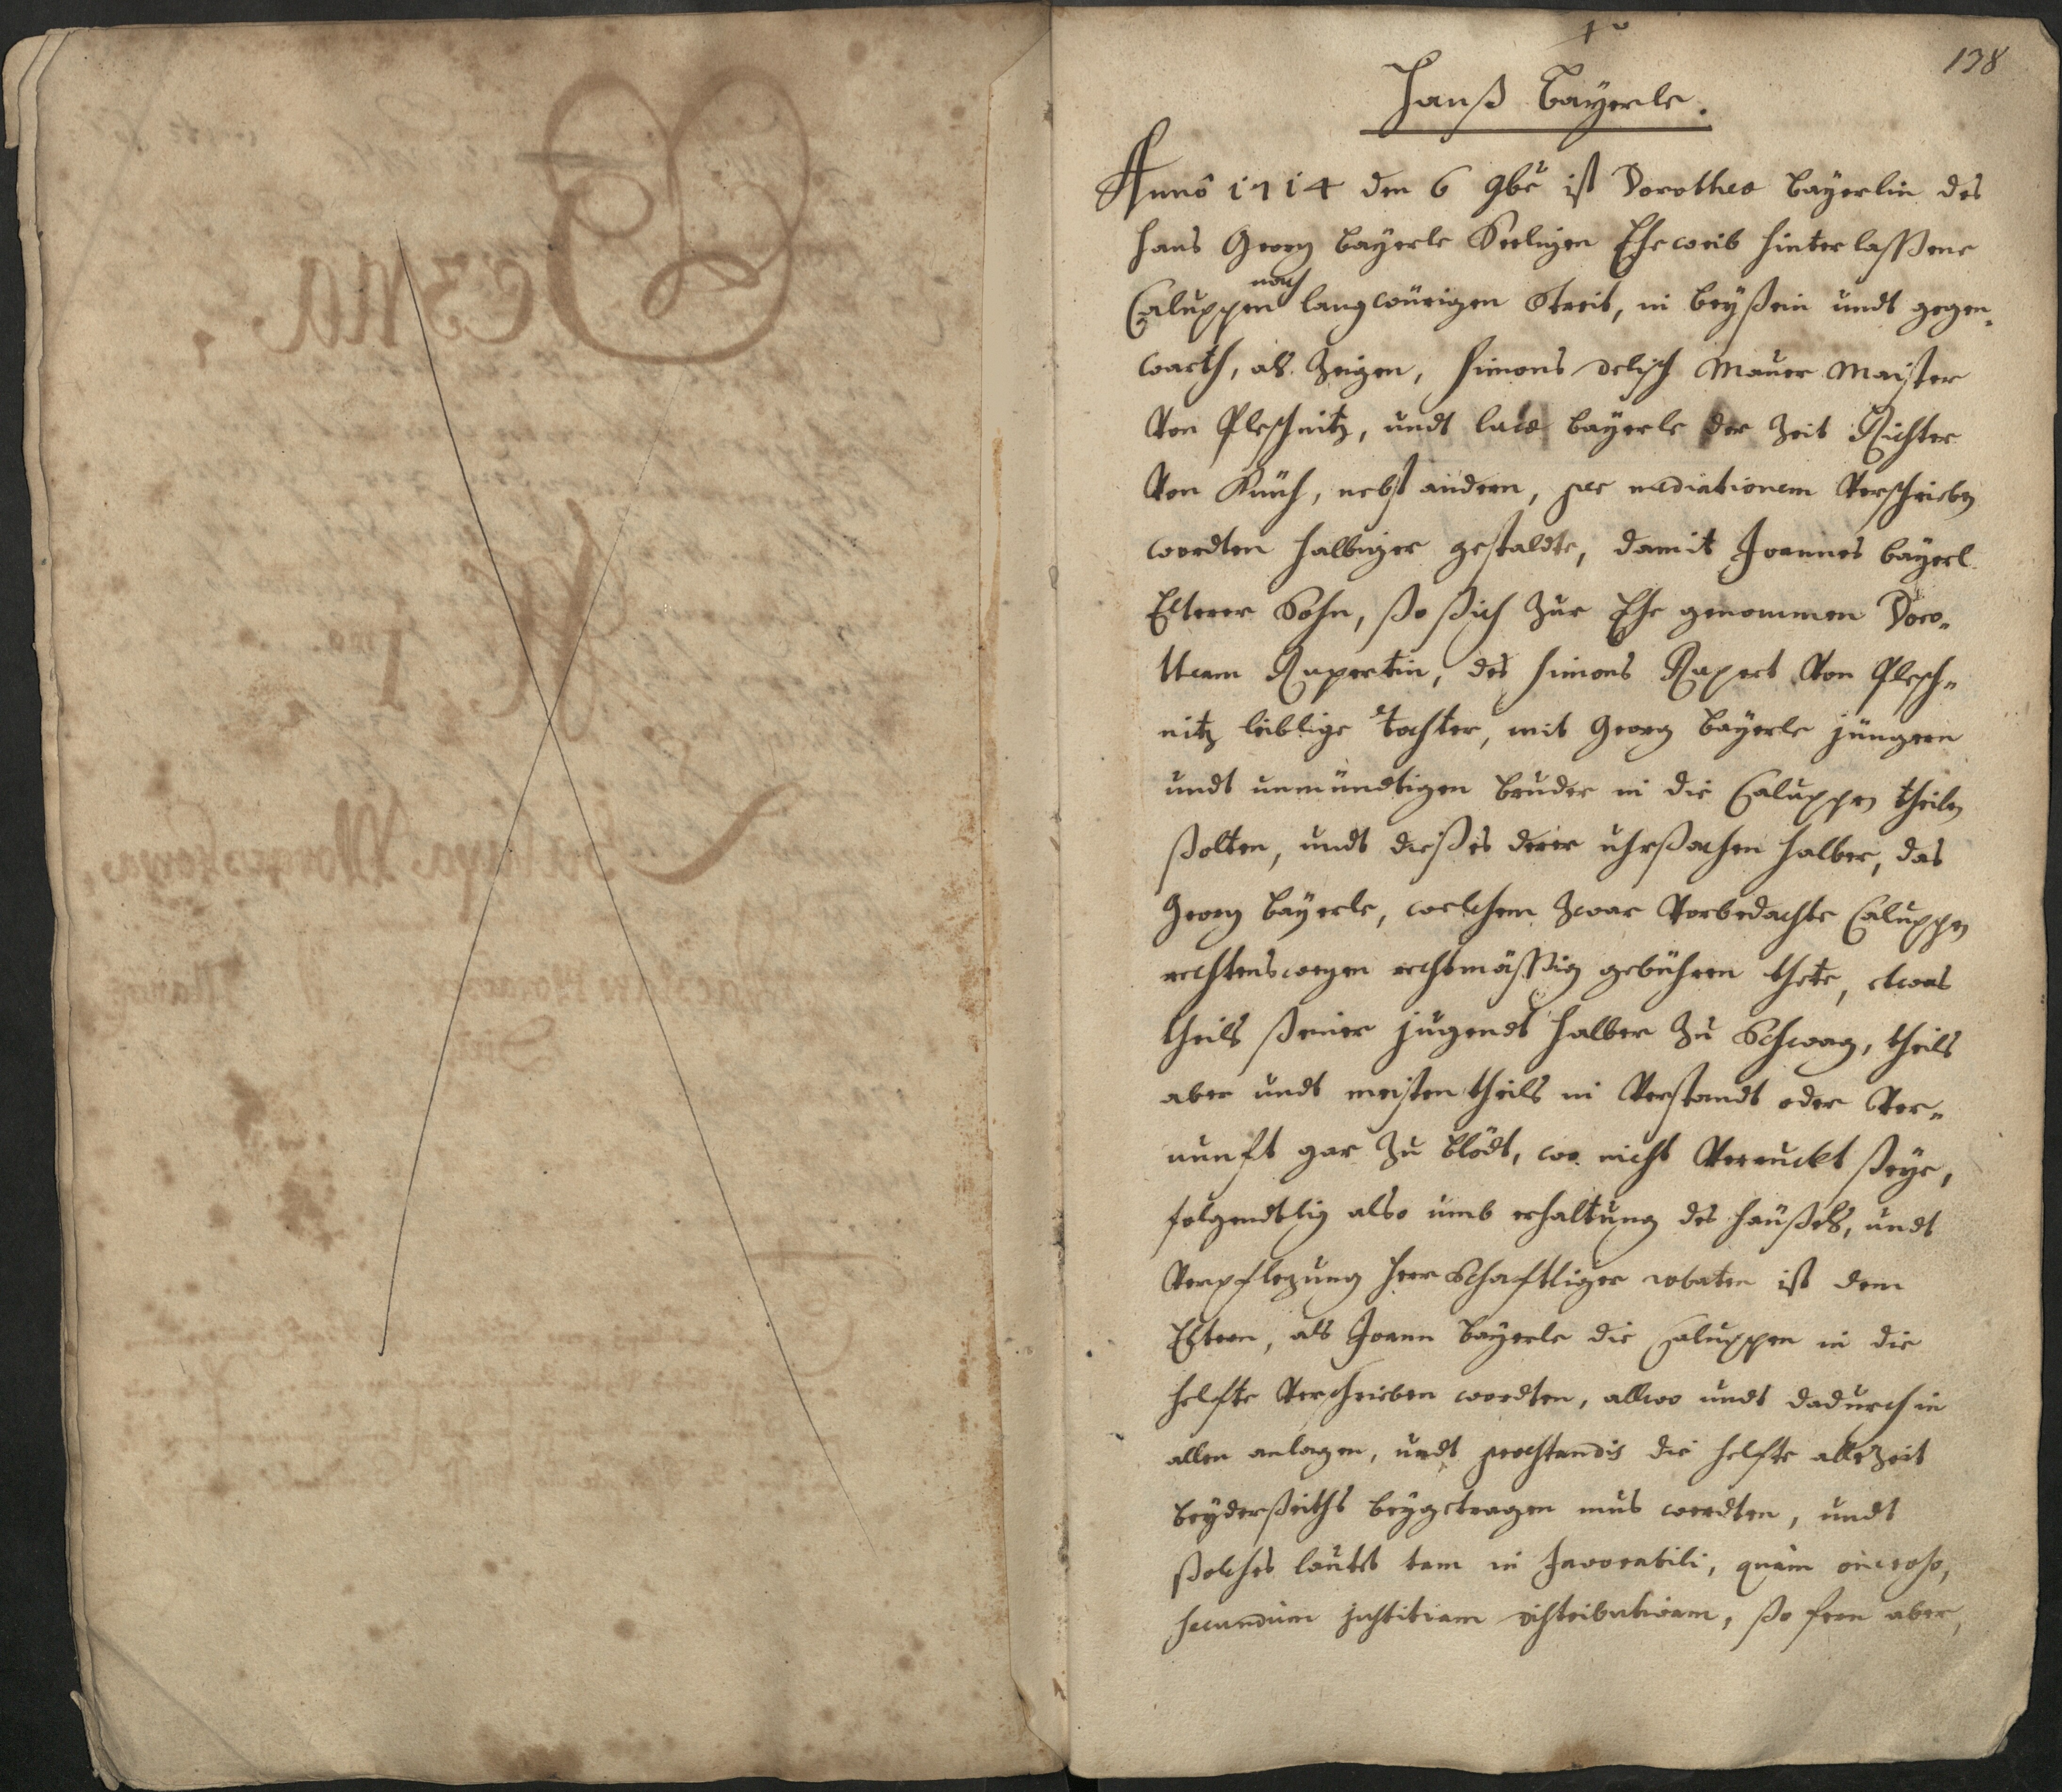 138
Hanß Bayerle.
Anno 1714 den 6 9br ist Dorothea Bayerlin des
Hans Georg Bayerle Seeligen Eheweib hinterlassene
Caluppen nach langwürigen Streit, in beyßein undt gegen¬
warth, als Zeigen, Simons Maurer Maister
Von Pleschnitz, undt Bayerle der Zeit Richter
Von Kniih, nebst andern, per mediationem Verschrieben
wordten halbiger gestaldte, damit Joannes Bayerl
Elterer Sohn, ßo ßich zur Ehe genommen Doro¬
theam Rupertin, des Simons Rupert Von Plesch¬
nitz leiblige tochter, mit Georg Bayerle jüngern
undt unmündtigen bruder in die Caluppen theilen
ßolten, undt dießes derer uhrßachen halber, das
Georg Bayerle, welchem zwar Vorbedachte Caluppen
rechtenswegen rechtmäßsig gebühren thete, etwas
theils ßeiner jugendt halber zu Schwag, theils
aber undt meisten theils in Verstandt oder Ver¬
nunft gar zu blödt, wo nicht Verruckt ßeye,
folgendtlig also umb erhaltung des haüßels, undt
Verpflegung herrSchaftliger robaten ist dem
Eltern, als Joann Bayerle die Caluppen in die
helfte Verschrieben wordten, allwo undt dadurch in
allen anlagen, undt praestandis die helfte allezeit
beyderßeiths beygetragen mus werdten, undt
ßolches lautet tam in favorabili, quàm oneroso,
secundum justitiam distributivam, ßo fern aber,